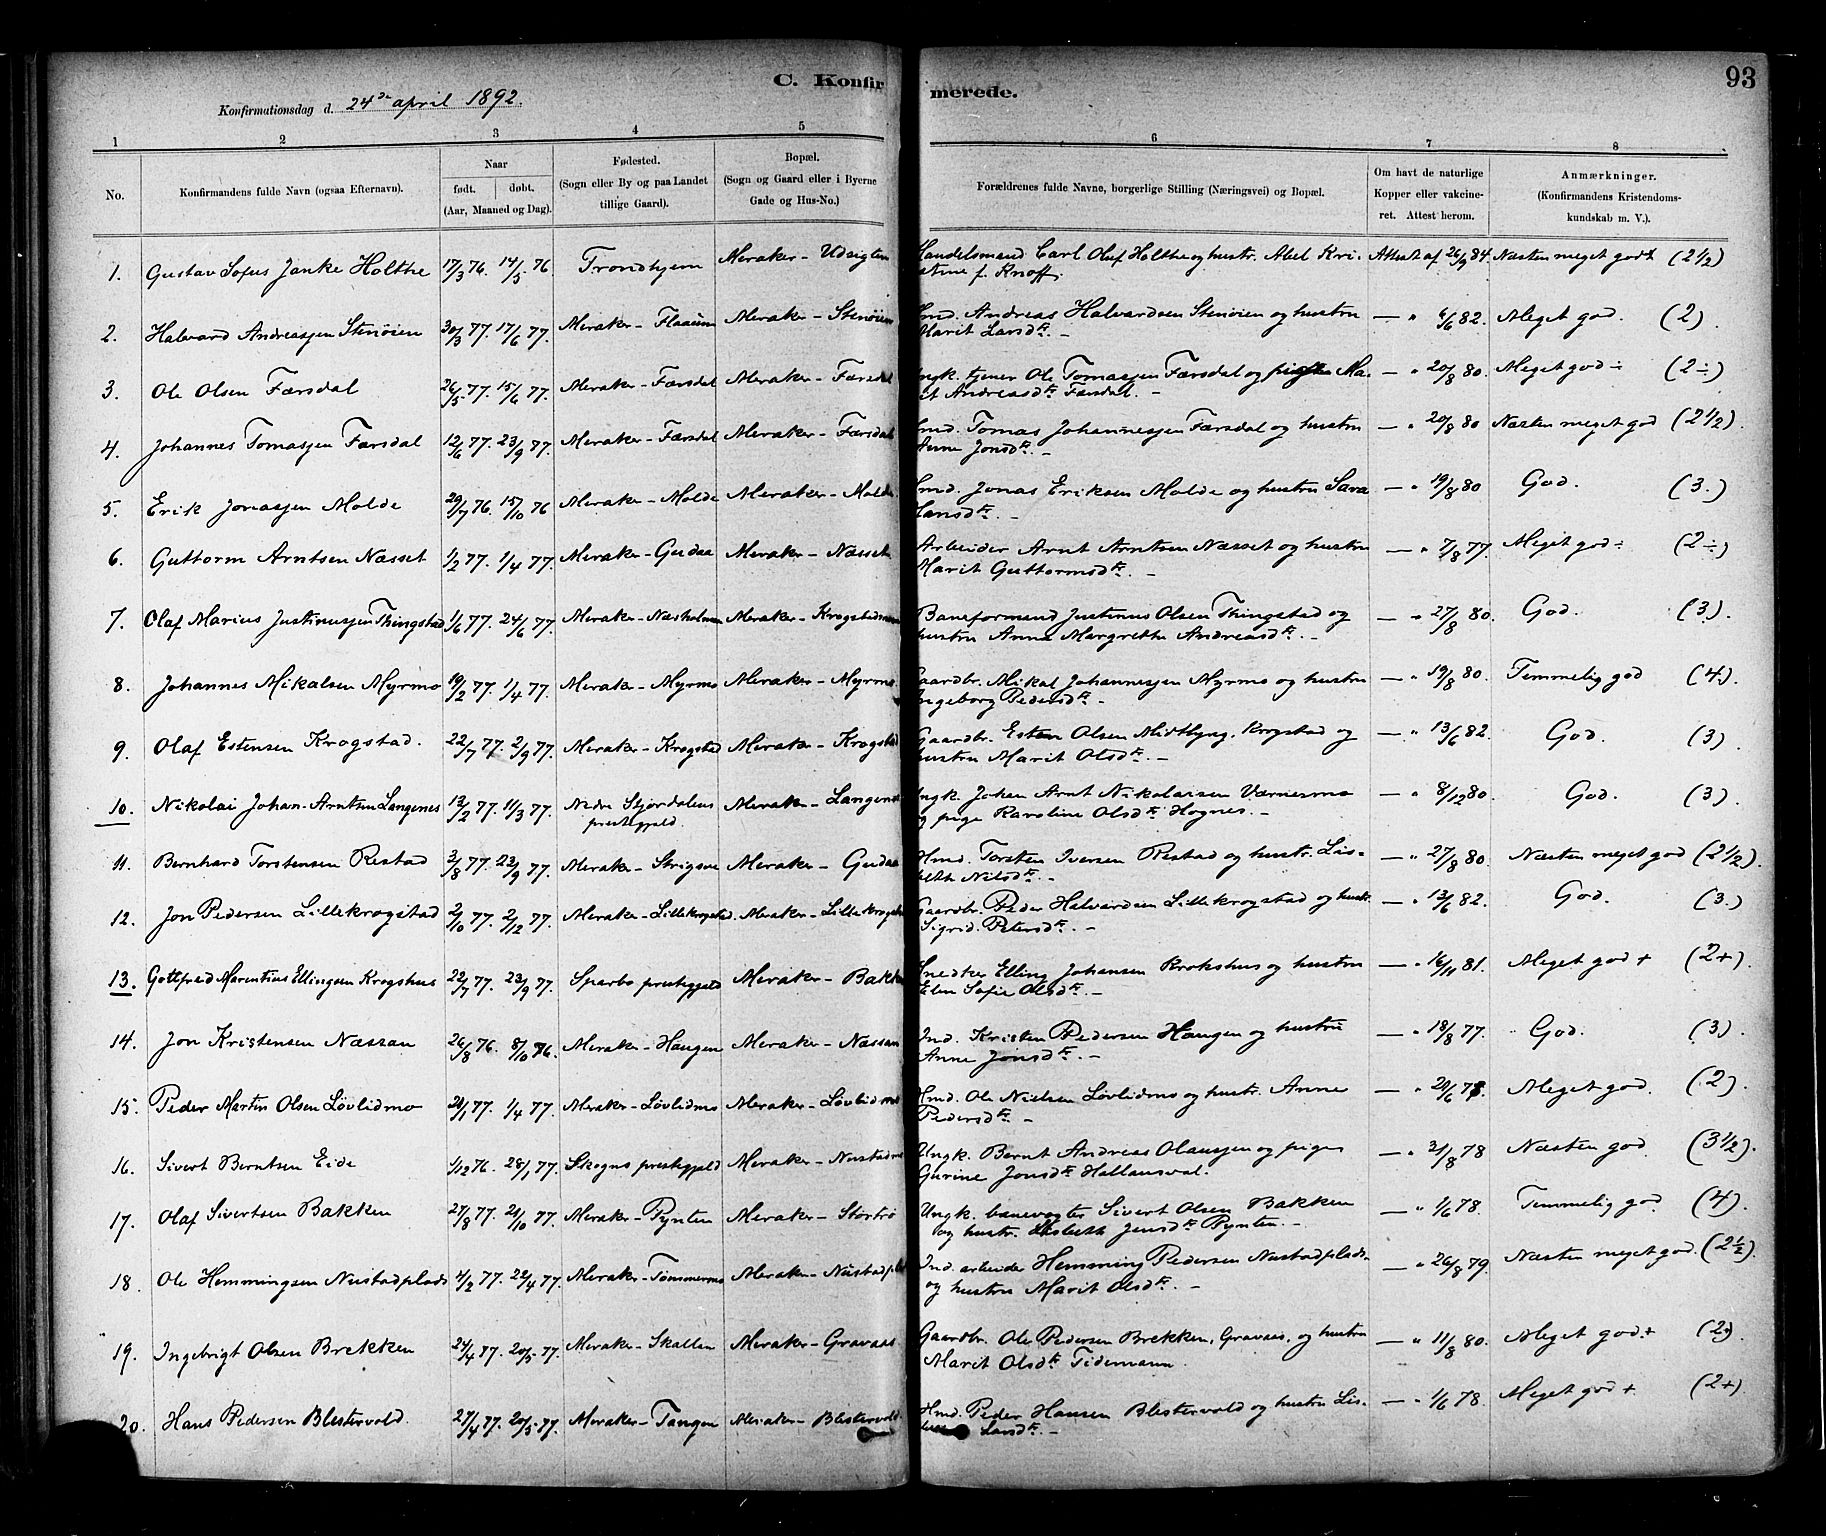 C. Konfirmerede.
93
Konfirmationsdag d. 24de april 1892.
1 2 3 4 5 6 7 8
No.
Konfirmandens fulde Navn (ogsaa Efternavn).
Naar
født. døbt.
(Aar, Maaned og Dag).
Fødested.
(Sogn eller By og paa Landet
tillige Gaard).
Bopæl.
(Sogn og Gaard eller i Byerne
Gade og Hus-No.)
Forældrenes fulde Navne, borgerlige Stilling (Næringsvei) og Bopæl.
Om havt de naturlige
Kopper eller vakcine-
ret. Attest herom.
Anmærkninger.
(Konfirmandens Kristendoms-
kundskab m. V.).
1. Gustav Sofus Janke Holthe 17/3 76. 14/5 76 Trondhjem Meraker - Udsigten Handelsmand Carl Oluf Holthe og hustr. Abel Kri- Attest af 26/9 84. Næsten meget godt (2 1/2)
stine f. Knoff.
2. Halvard Andreassen Stenøien 30/3 77. 17/6 77. Meraker - Flaaum Meraker - Stenøien Hmd. Andreas Halvardsen Stenøien og hustru — " 6/6 82. Meget god. (2).
Marit Larsdtr. -
3. Ole Olsen Færsdal 26/5 77. 15/6 77. Meraker - Færsdal Meraker - Færsdal Ungk. tjener Ole Tomassen Færsdal og pige Ma- — " 20/8 80. Meget god ÷ (2÷)
rit Andreasdtr Færsdal. -
4. Johannes Tomassen Færsdal 12/6 77. 23/9 77. Meraker - Færsdal Meraker - Færsdal Hmd. Tomas Johannessen Færsdal og hustru — " 20/8 80 Næsten meget god (2 1/2).
Anne Jonsdtr. -
5. Erik Jonassen Molde 29/7 76. 15/10 76 Meraker - Molde Meraker - Molde. Hmd. Jonas Eriksen Molde og hustru Sara — " 19/8 80 God. (3.)
Larsdtr. -
6. Guttorm Arntsen Næsset 1/2 77. 1/4 77. Meraker - Gudaa Meraker - Næsset Arbeider Arnt Arntsen Næsset og hustru — " 7/8 77. Meget god ÷ (2÷)
Marit Guttormsdtr. -
7. Olaf Marius Justinussen Thingstad 1/6 77. 24/6 77. Meraker - Næsholmen Meraker - Krogstadmoen Baneformand Justinus Olsen Thingstad og — " 27/8 80. God. (3.)
hustru Anna Margrethe Andreasdtr. -
8. Johannes Mikalsen Myrmo 19/2 77. 1/4 77. Merak - Myrmo Meraker - Myrmo Gaardbr. Mikal Johannessen Myrmo og hustru — " 19/8 80. Temmelig god (4.)
Ingeborg Pedersdtr. -
9. Olaf Estensen Krogstad. 22/7 77. 2/9 77. Meraker - Krogstad Meraker - Krogstad Gaardbr. Esten Olsen Midtbyng. Krogstad og — " 13/6 82. God. (3).
hustru Marit Olsdtr. -
10. Nikolai Johan Arntsen Langenes 13/2 77. 11/3 77. Nedre Stjørdalens Meraker - Langenes Ungk. Johan Arnt Nikolaisen Værnesmo — " 8/12 80. God. (3).
præstegjeld. og pige Karoline Olsdtr Hognes. -
11. Bernhard Torstensen Restad 3/8 77. 23/9 77. Meraker - Meraker - Gudaa Hmd. Torsten Iversen Restad og hustr. Lis- — " 27/8 80. Næsten meget god (2 1/2).
beth Nilsdtr. -
12. Jon Pedersen Lillekrogstad 2/10 77. 2/12 77. Meraker - Lillekrogstad. Meraker - Lillekrogstad Gaardbr. Peder Halvardsen Lillekrogstad og hustr. — " 13/6 82. God. (3.)
Sigrid Petersdtr. -
13. Gottfred Marentius Ellingsen Krogshus 22/7 77. 23/9 77. Sparbo prestegjeld Meraker - Bakken Snedker Elling Johansen Krokshus og hustru — " 16/11 81. Meget god + (2+).
Elen Sofie Olsdtr. -
14. Jon Kristensen Næssan 26/8 76. 8/10 76. Meraker - Haugen Meraker - Næssan Ind. Kristen Pedersen Haugen og hustru — " 18/8 77. God. (3).
Anne Jonsdtr. -
15. Peder Martin Olsen Løvlidmo 20/1 77. 1/4 77. Meraker - Løvlidmo Meraker - Løvlidmo Hmd. Ole Nielsen Løvlidmo og hustr. Anne — " 20/6 78. Meget god. (2).
Pedersdtr. -
16. Sivert Berntsen Eide 1/12 76. 28/1 77. Skogns prestegjeld Meraker - Nustadmo Ungk. Bernt Andreas Olaussen og pige — " 31/8 78 Næsten god. (3 1/2).
Gurine Jonsdtr Hallansval.
17. Olaf Sivertsen Bakken 27/8 77. 21/10 77. Meraker - Pynten Meraker - Stortrø Ungk. banevogter Sivert Olsen Bakken — " 1/6 78. Temmelig god. (4).
og hustr. Lisbeth Jensdtr Pynten. -
18. Ole Hemmingsen Nustadplads 4/2 77. 22/4 77. Meraker - Tømmermo Meraker - Nustadpl. Ind. arbeider Hemming Pedersen Nustadplads. — " 26/8 79. Næsten meget god. (2 1/2).
og hustru Marit Olsdtr. -
19. Ingebrigt Olsen Brekken 24/4 77. 20/5 77. Meraker - Skallen Meraker - Gravaas Gaardbr. Ole Pedersen Brekken, Gravaas, og hustru — " 11/8 80. Meget god + (2).
Marit Olsdtr Tidemann.
20. Hans Pedersen Blestervold. 27/4 77. 20/5 77. Meraker - Tangen Meraker - Blestervold Hmd. Peder Hansen Blestervold og hustru Lis- — " 1/6 78. Meget god + (2+)
Larsdtr. -